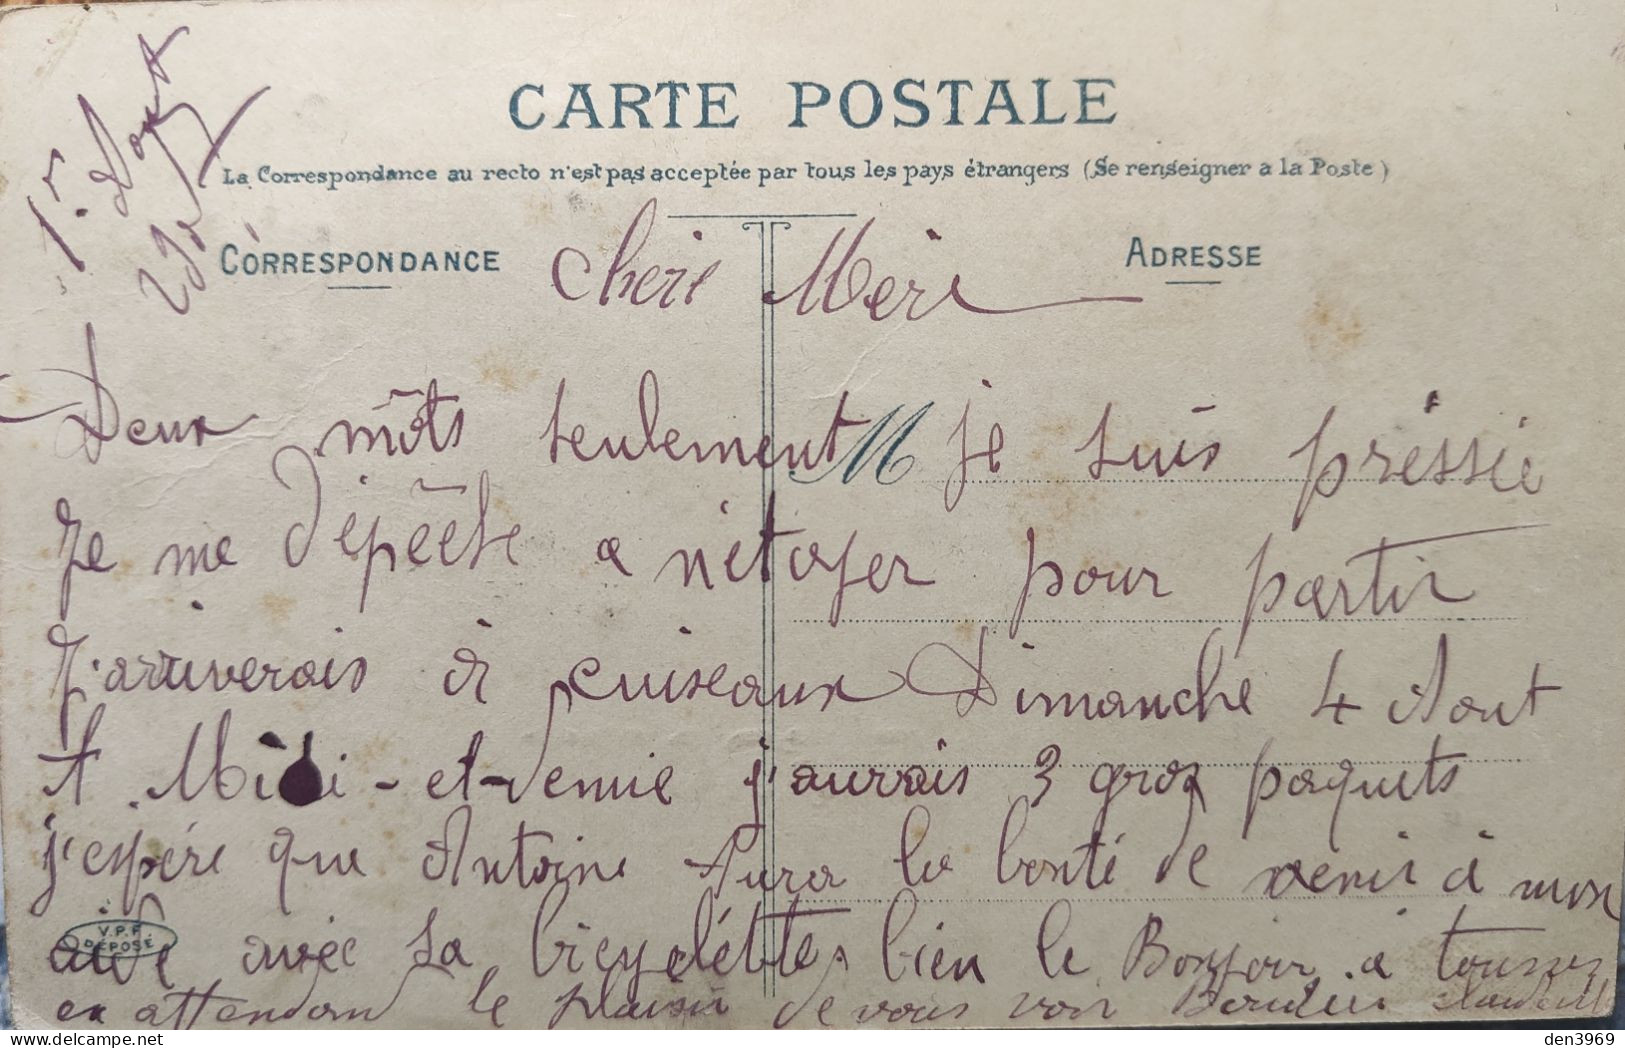 1er Aout
CARTE POSTALE
La Correspondance au recto n'est pas acceptée par tous les pays étrangers (Se renseigner a la Poste)
CORRESPONDANCE
ADRESSE
Chere Mere
Deux môts seulement M je suis préssée
Je me dépêche a nétoyer pour partir
J'arriverais à cuiseaux Dimanche 4 Aout
A Midi-et-demie j'aurais 3 gros paquets
j'espére que Antoine Aura la bonté de venir à mon
aide avec sa bicyclétte, bien le Bonjoir a tousses
V.P.F
DÉPOSÉ
en attendant le plaisir de vous voir
den3969